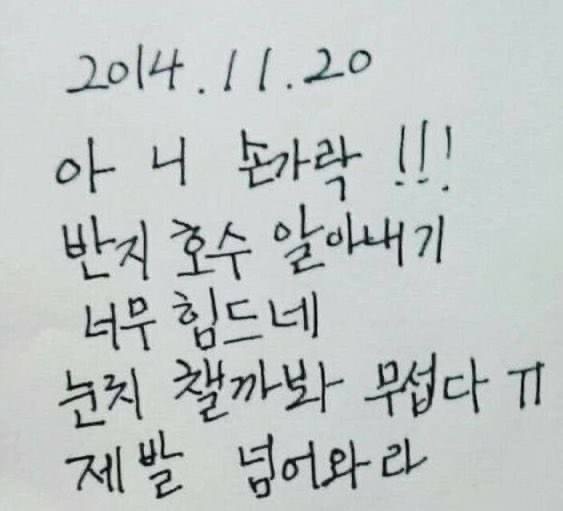 2014.11.20
아 니 손가락 !!!
반지 호수 알아내기
너무 힘드네
눈치 챌까봐 무섭다 ㅠ
제발 넘어와라